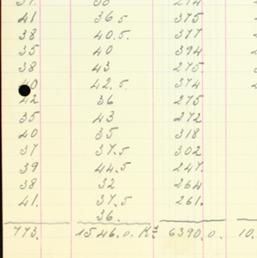 41 36.5 375
38 40.5. 377
35 40 394
38 43 275
40 42.5. 374
42 36 275
35 43 272
40 35 318
37 37.5 302
39 44.5 247.
38 32 264
41. 37.5 261.
36.
773. 1546.0. K° 6390.0. 10.